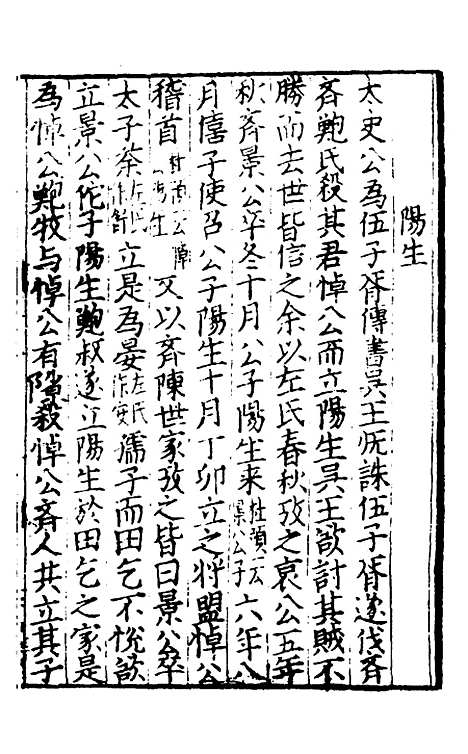 陽生
太史公為伍子胥傳書吳王既誅伍子胥遂伐齊
齊鮑氏殺其君悼公而立陽生吳王欲討其賊不
勝而去世皆信之余以左氏春秋攷之哀公五年
秋齊景公卒冬十月公子陽生来杜預云景公子六年八
月僖子使召公子陽生十月丁卯立之将盟悼公
稽首杜預云悼公陽生又以齊陳世家攷之皆曰景公卒
太子荼左氏作舒立是為晏左氏作安孺子而田乞不悅欲
立景公佗子陽生鮑叔遂立陽生於田乞之家是
為悼公鮑牧与悼公有隙殺悼公齊人共立其子